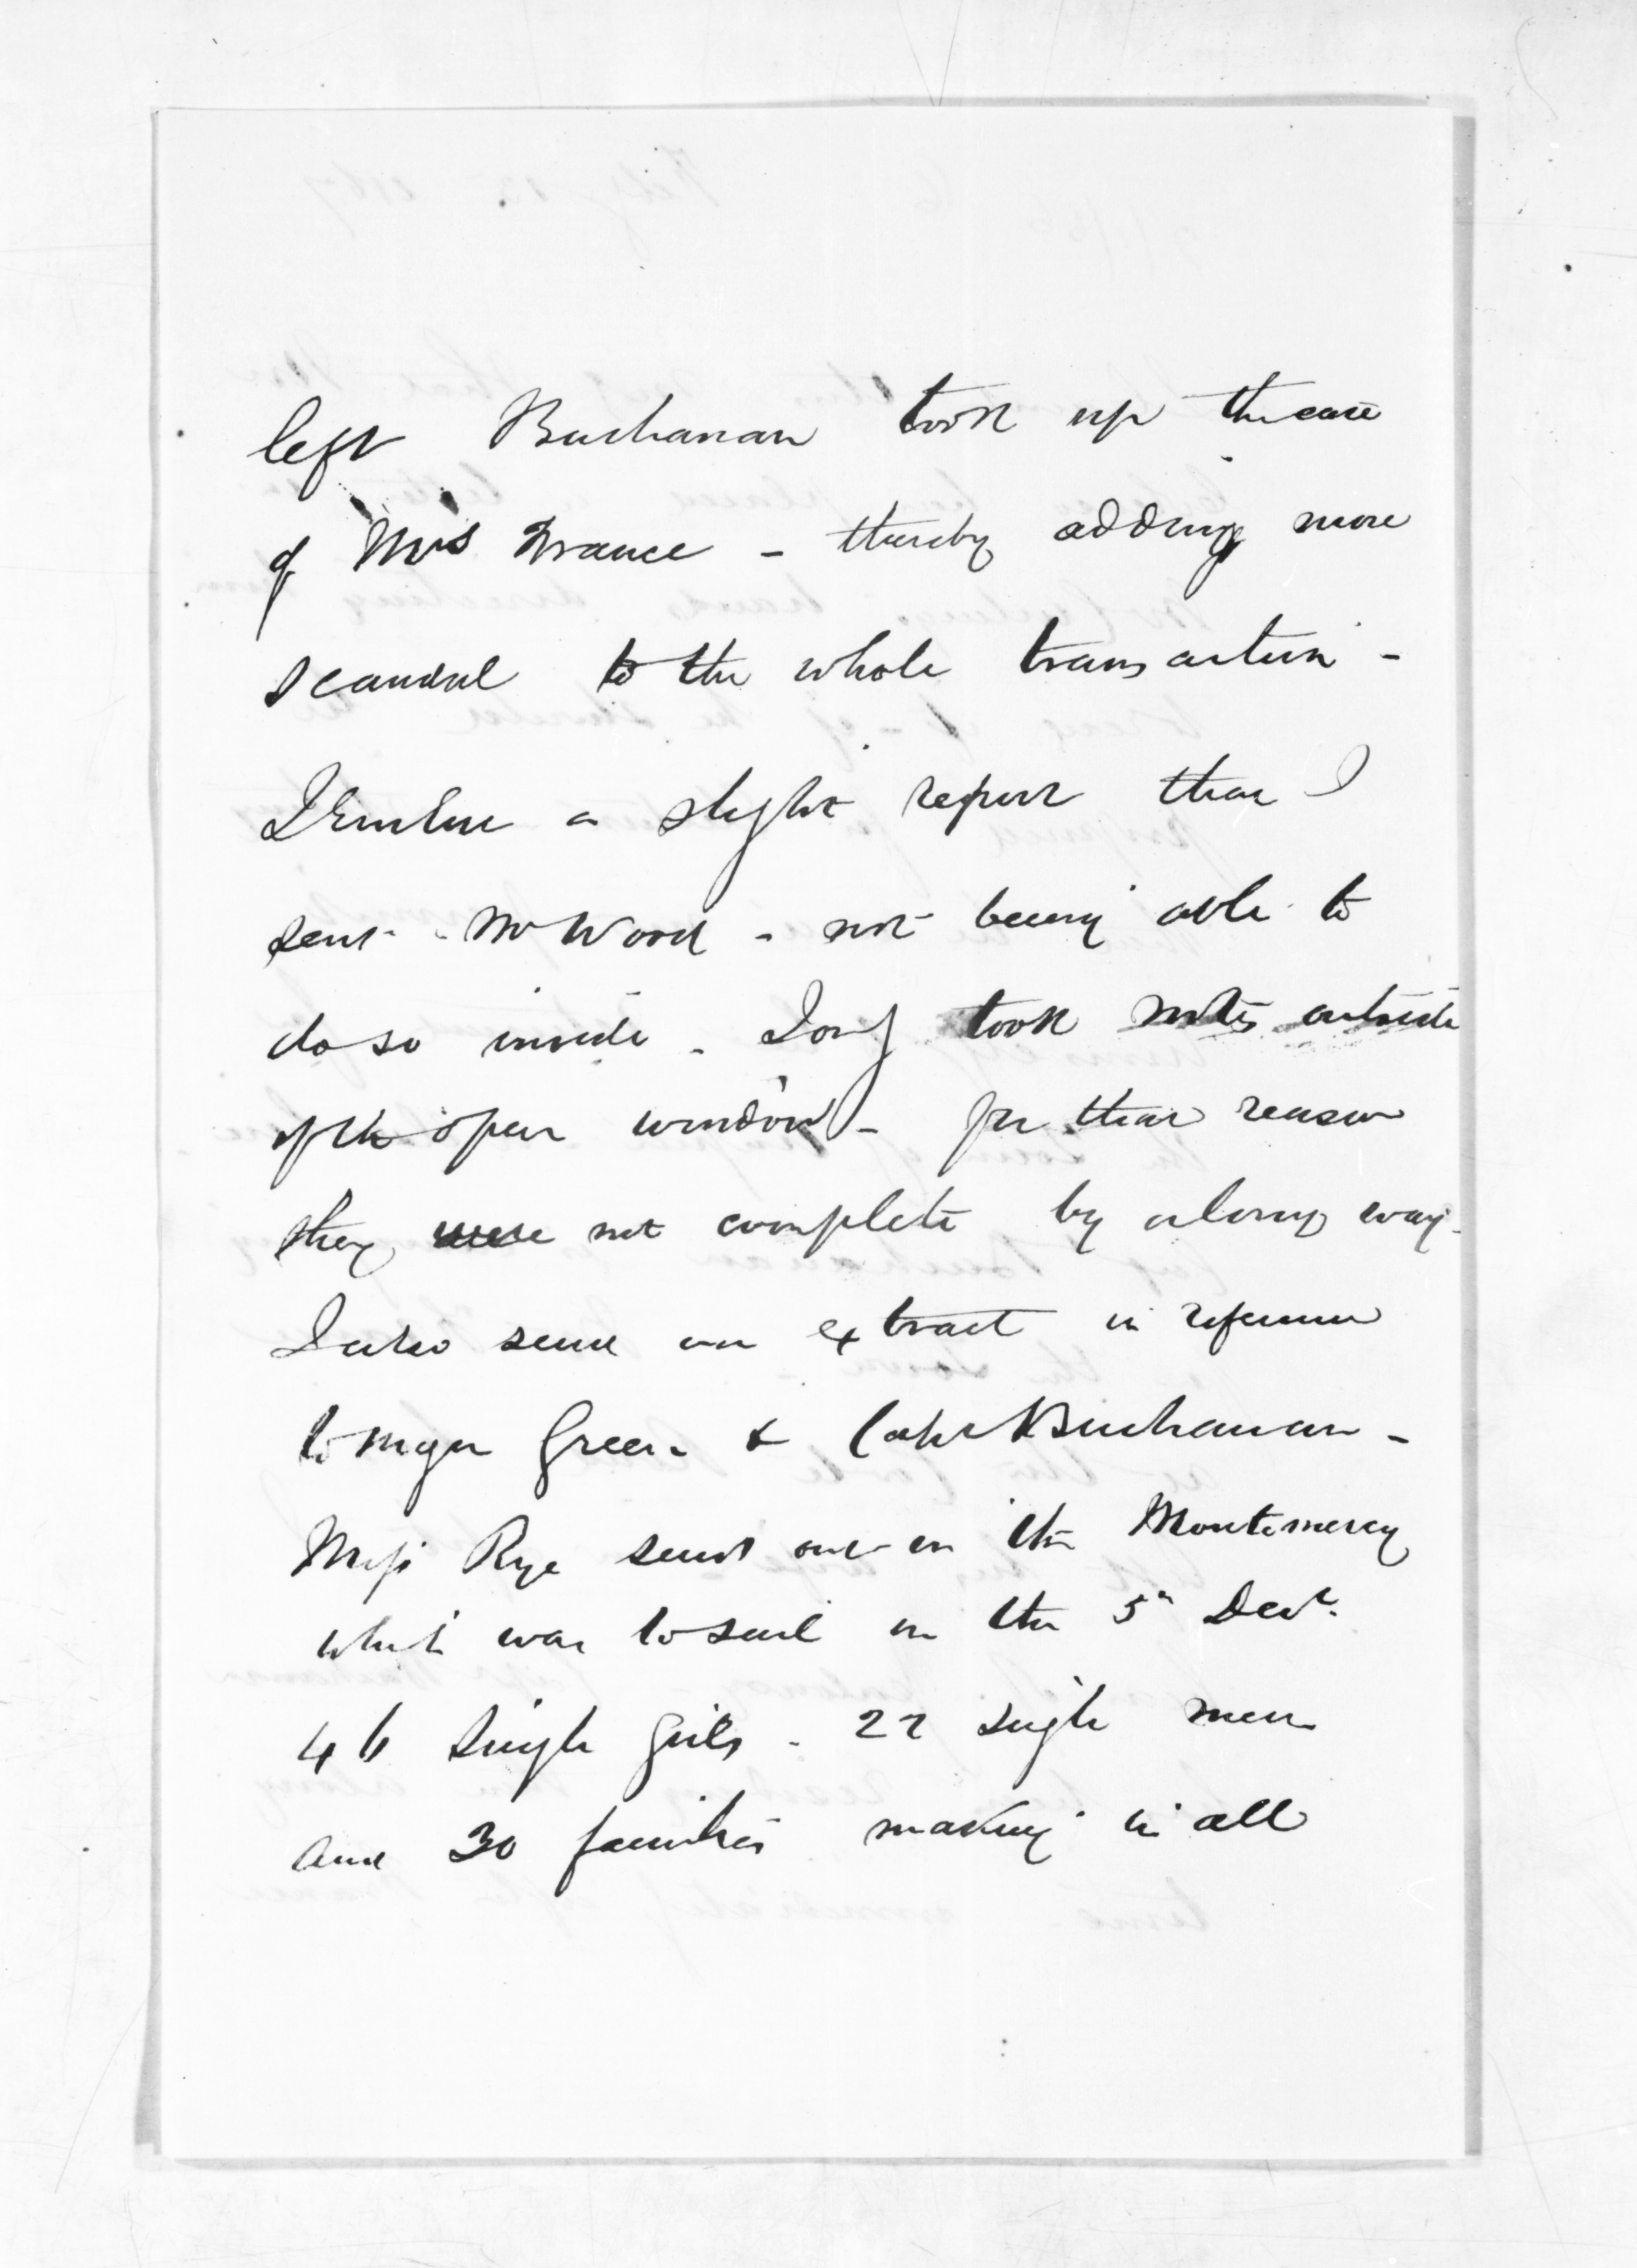 left Buchanan took up the case
of Mrs France - thereby adding more
scandal to the whole transaction -
I Enclose a slight report that I
sent - Mr Wood - not being able to
do so inside - Only took notes outside
of the open window - for that reason
they were not complete by a long way -
I also send an extract in reference
to Major Green & Capt Buchanan -
Miss Rye sent out in the Montmorency
which was to sail on the 5th Decr.
46 Single Girls - 22 single men
and 30 families making in all